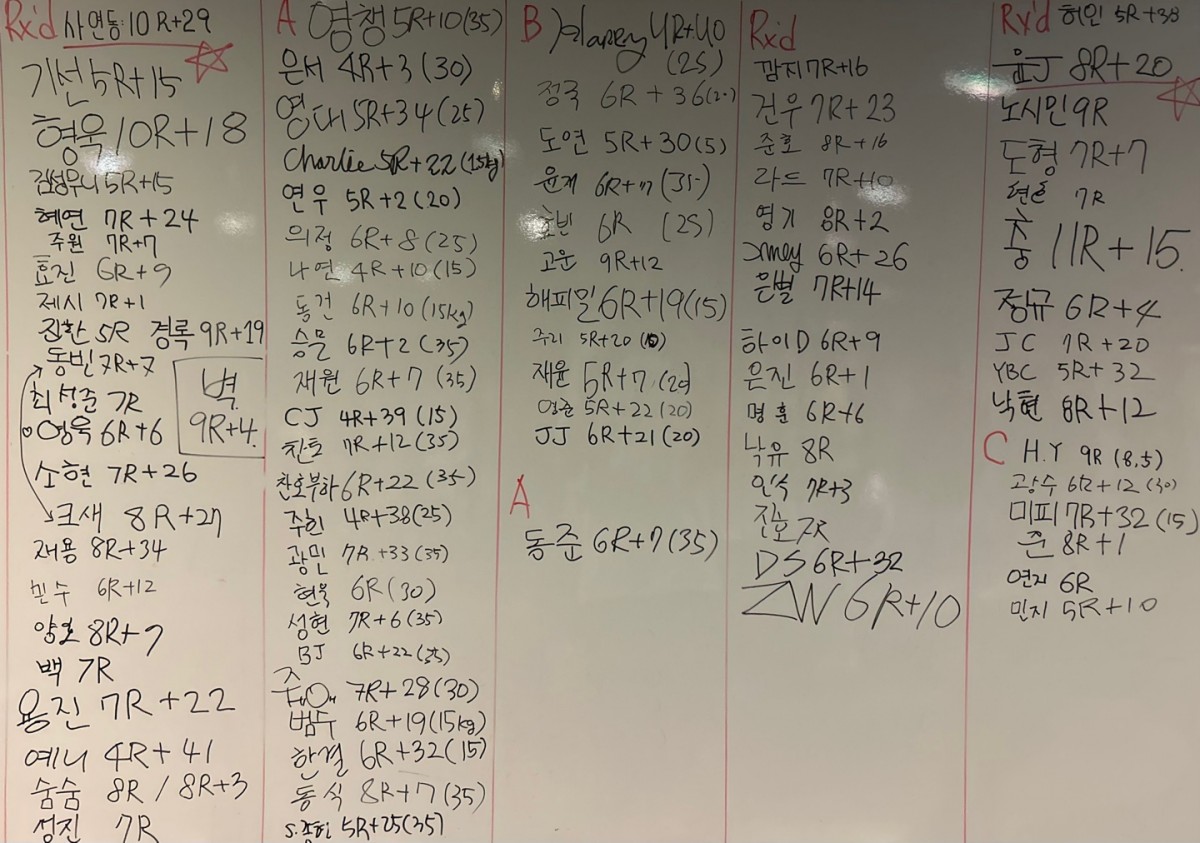 Rx'd 사연동:10R+29
기선 5R+15
형욱 10R+18
김성우니 5R+15
혜연 7R+24
주원 7R+7
효진 6R+9
제시 7R+1
진환 5R 경록 9R+19
동빈 7R+7
최성준 7R
영욱 6R+6
벽.
9R+4.
소현 7R+26
크새 8R+27
재용 8R+34
민수 6R+12
양호 8R+7
백 7R
용진 7R+22
예니 4R+41
숨숨 8R / 8R+3
성진 7R
A 영챙 5R+10(35)
은서 4R+3(30)
영대 5R+34(25)
Charlie 5R+22(15kg)
연우 5R+2(20)
의정 6R+8(25)
나연 4R+10(15)
동건 6R+10(15kg)
승물 6R+2(35)
재원 6R+7(35)
CJ 4R+39(15)
찬토 7R+12(35)
찬호부하 6R+22(35)
주희 4R+38(25)
광민 7R+33(35)
현욱 6R(30)
성현 7R+6(35)
BJ 6R+22(35)
7R+28(30)
범수 6R+19(15kg)
한결 6R+32(15)
동식 8R+7(35)
5R+25(35)
B Harry 4R+40
(25)
정국 6R+36(20)
도연 5R+30(5)
윤재 6R+11(35)
효빈 6R (25)
고운 9R+12
해피밀 6R+19(15)
주리 5R+20(10)
재윤 5R+7(20)
영준 5R+22(20)
JJ 6R+21(20)
A
동준 6R+7(35)
Rx'd
깜지 7R+16
건우 7R+23
준호 8R+16
라드 7R+10
영기 8R+2
6R+26
은별 7R+14
하이D 6R+9
은진 6R+1
명훈 6R+6
낙유 8R
인식 7R+3
진호 7R
DS 6R+32
ZW 6R+10
Rx'd 허인 5R+38
윤J 8R+20
노시민 9R
도형 7R+7
7R
충 11R+15.
정규 6R+4
JC 7R+20
YBC 5R+32
낙현 8R+12
C H.Y 9R(8.5)
광수 6R+12(30)
미피 7R+32(15)
준 8R+1
연지 6R
민지 5R+10